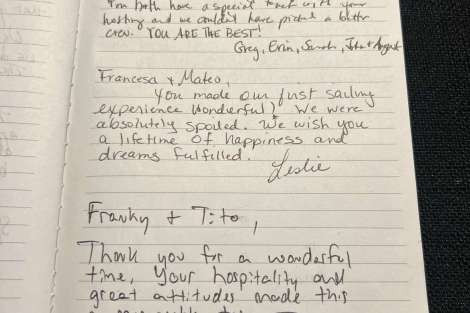 You both have a special touch with your
hosting and we couldn't have picked a better
crew. YOU ARE THE BEST!
Greg, Erin, Sarah, John + August
Francesa + Mateo,
You made our first sailing
experience wonderful! We were
absolutely spoiled. We wish you
a lifetime of happiness and
dreams fulfilled.
Leslie
Franky + Tito,
Thank you for a wonderful
time, your hospitality and
great attitudes made this